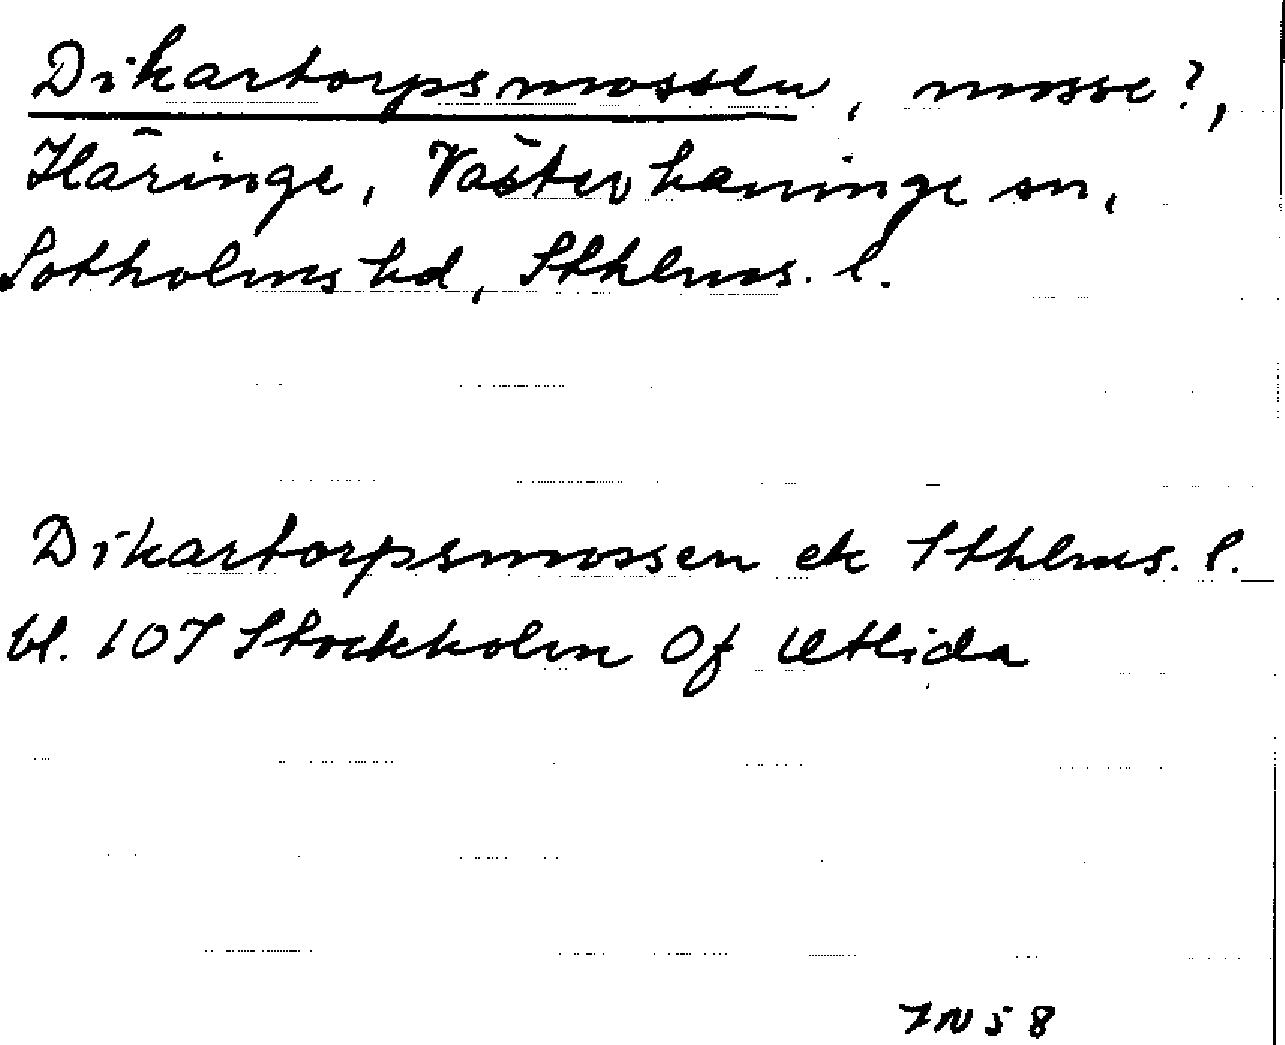 Dikartorpsmossen, mosse?,
Häringe, Västerhaninge sn,
Sotholms hd, Sthlms. l.
Dikartorpsmossen ek Sthlms. l.
bl. 107 Stockholm Of Utlida
IN 58